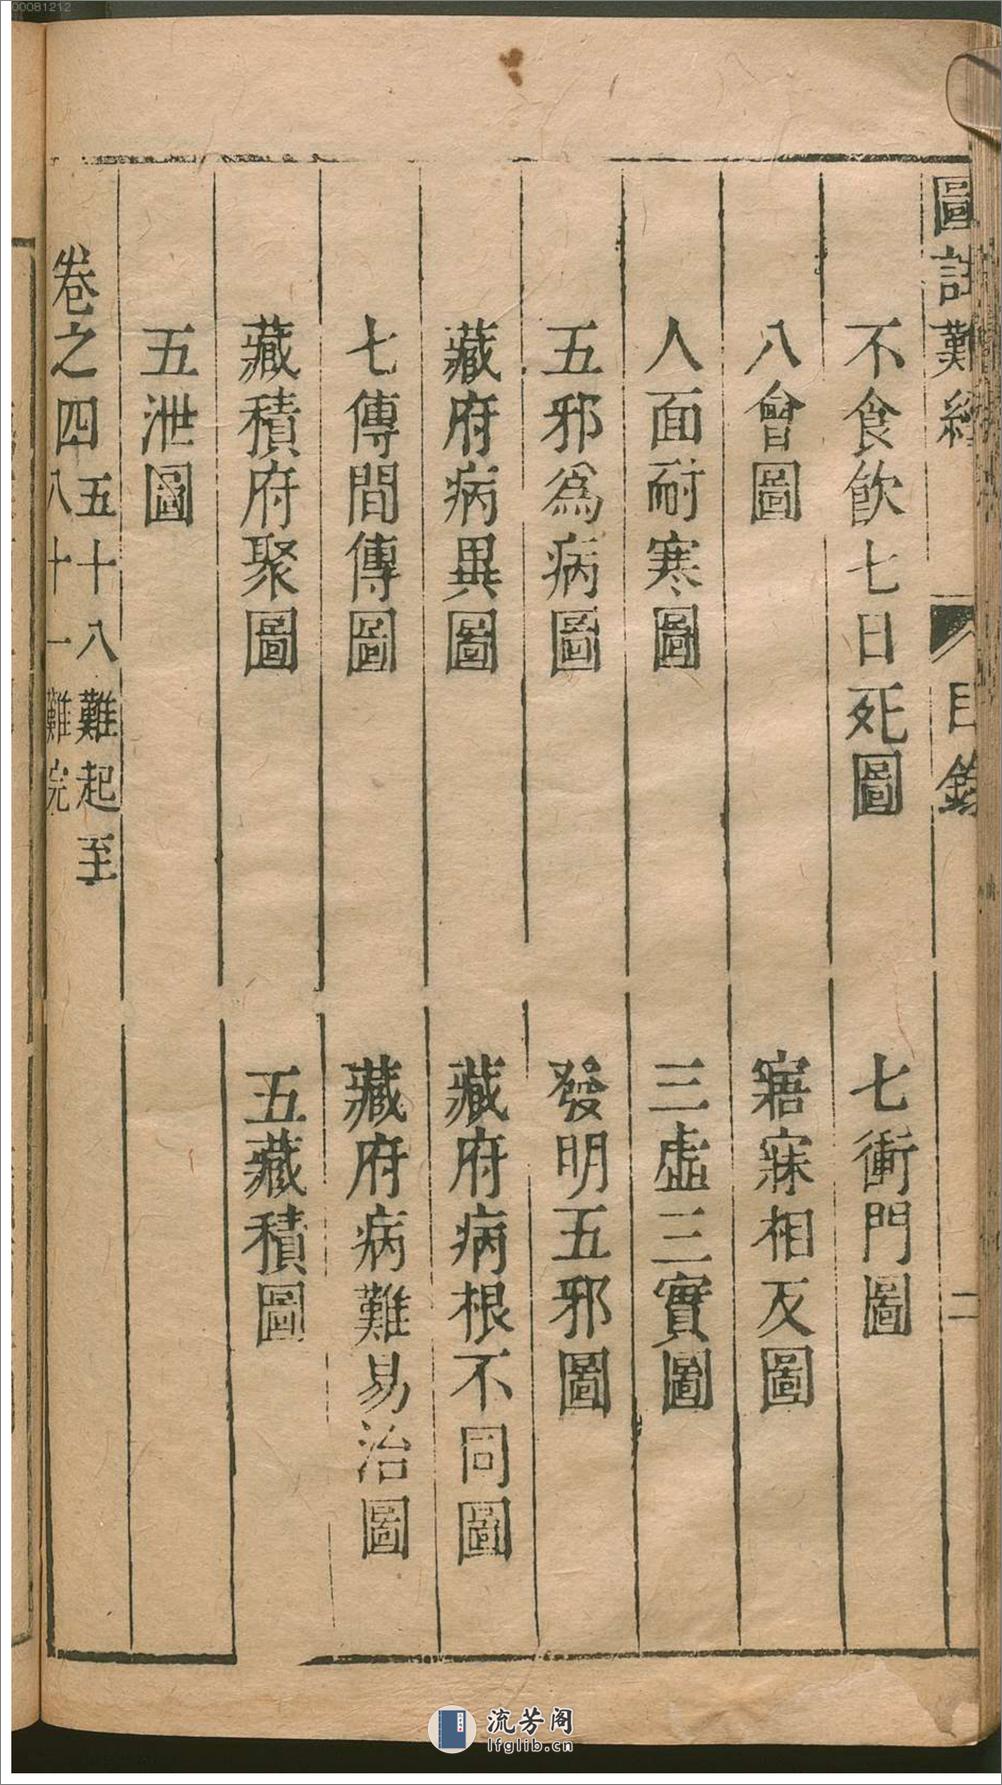 00081212
圖註難經 目錄 二
不食飲七日死圖 七衝門圖
八會圖 寤寐相反圖
人面耐寒圖 三虛三實圖
五邪為病圖 發明五邪圖
藏府病異圖 藏府病根不同圖
七傳間傳圖 藏府病難易治圖
藏積府聚圖 五藏積圖
五泄圖
卷之四 五十八難起至
八十一難完
流芳阁
lfglib.cn